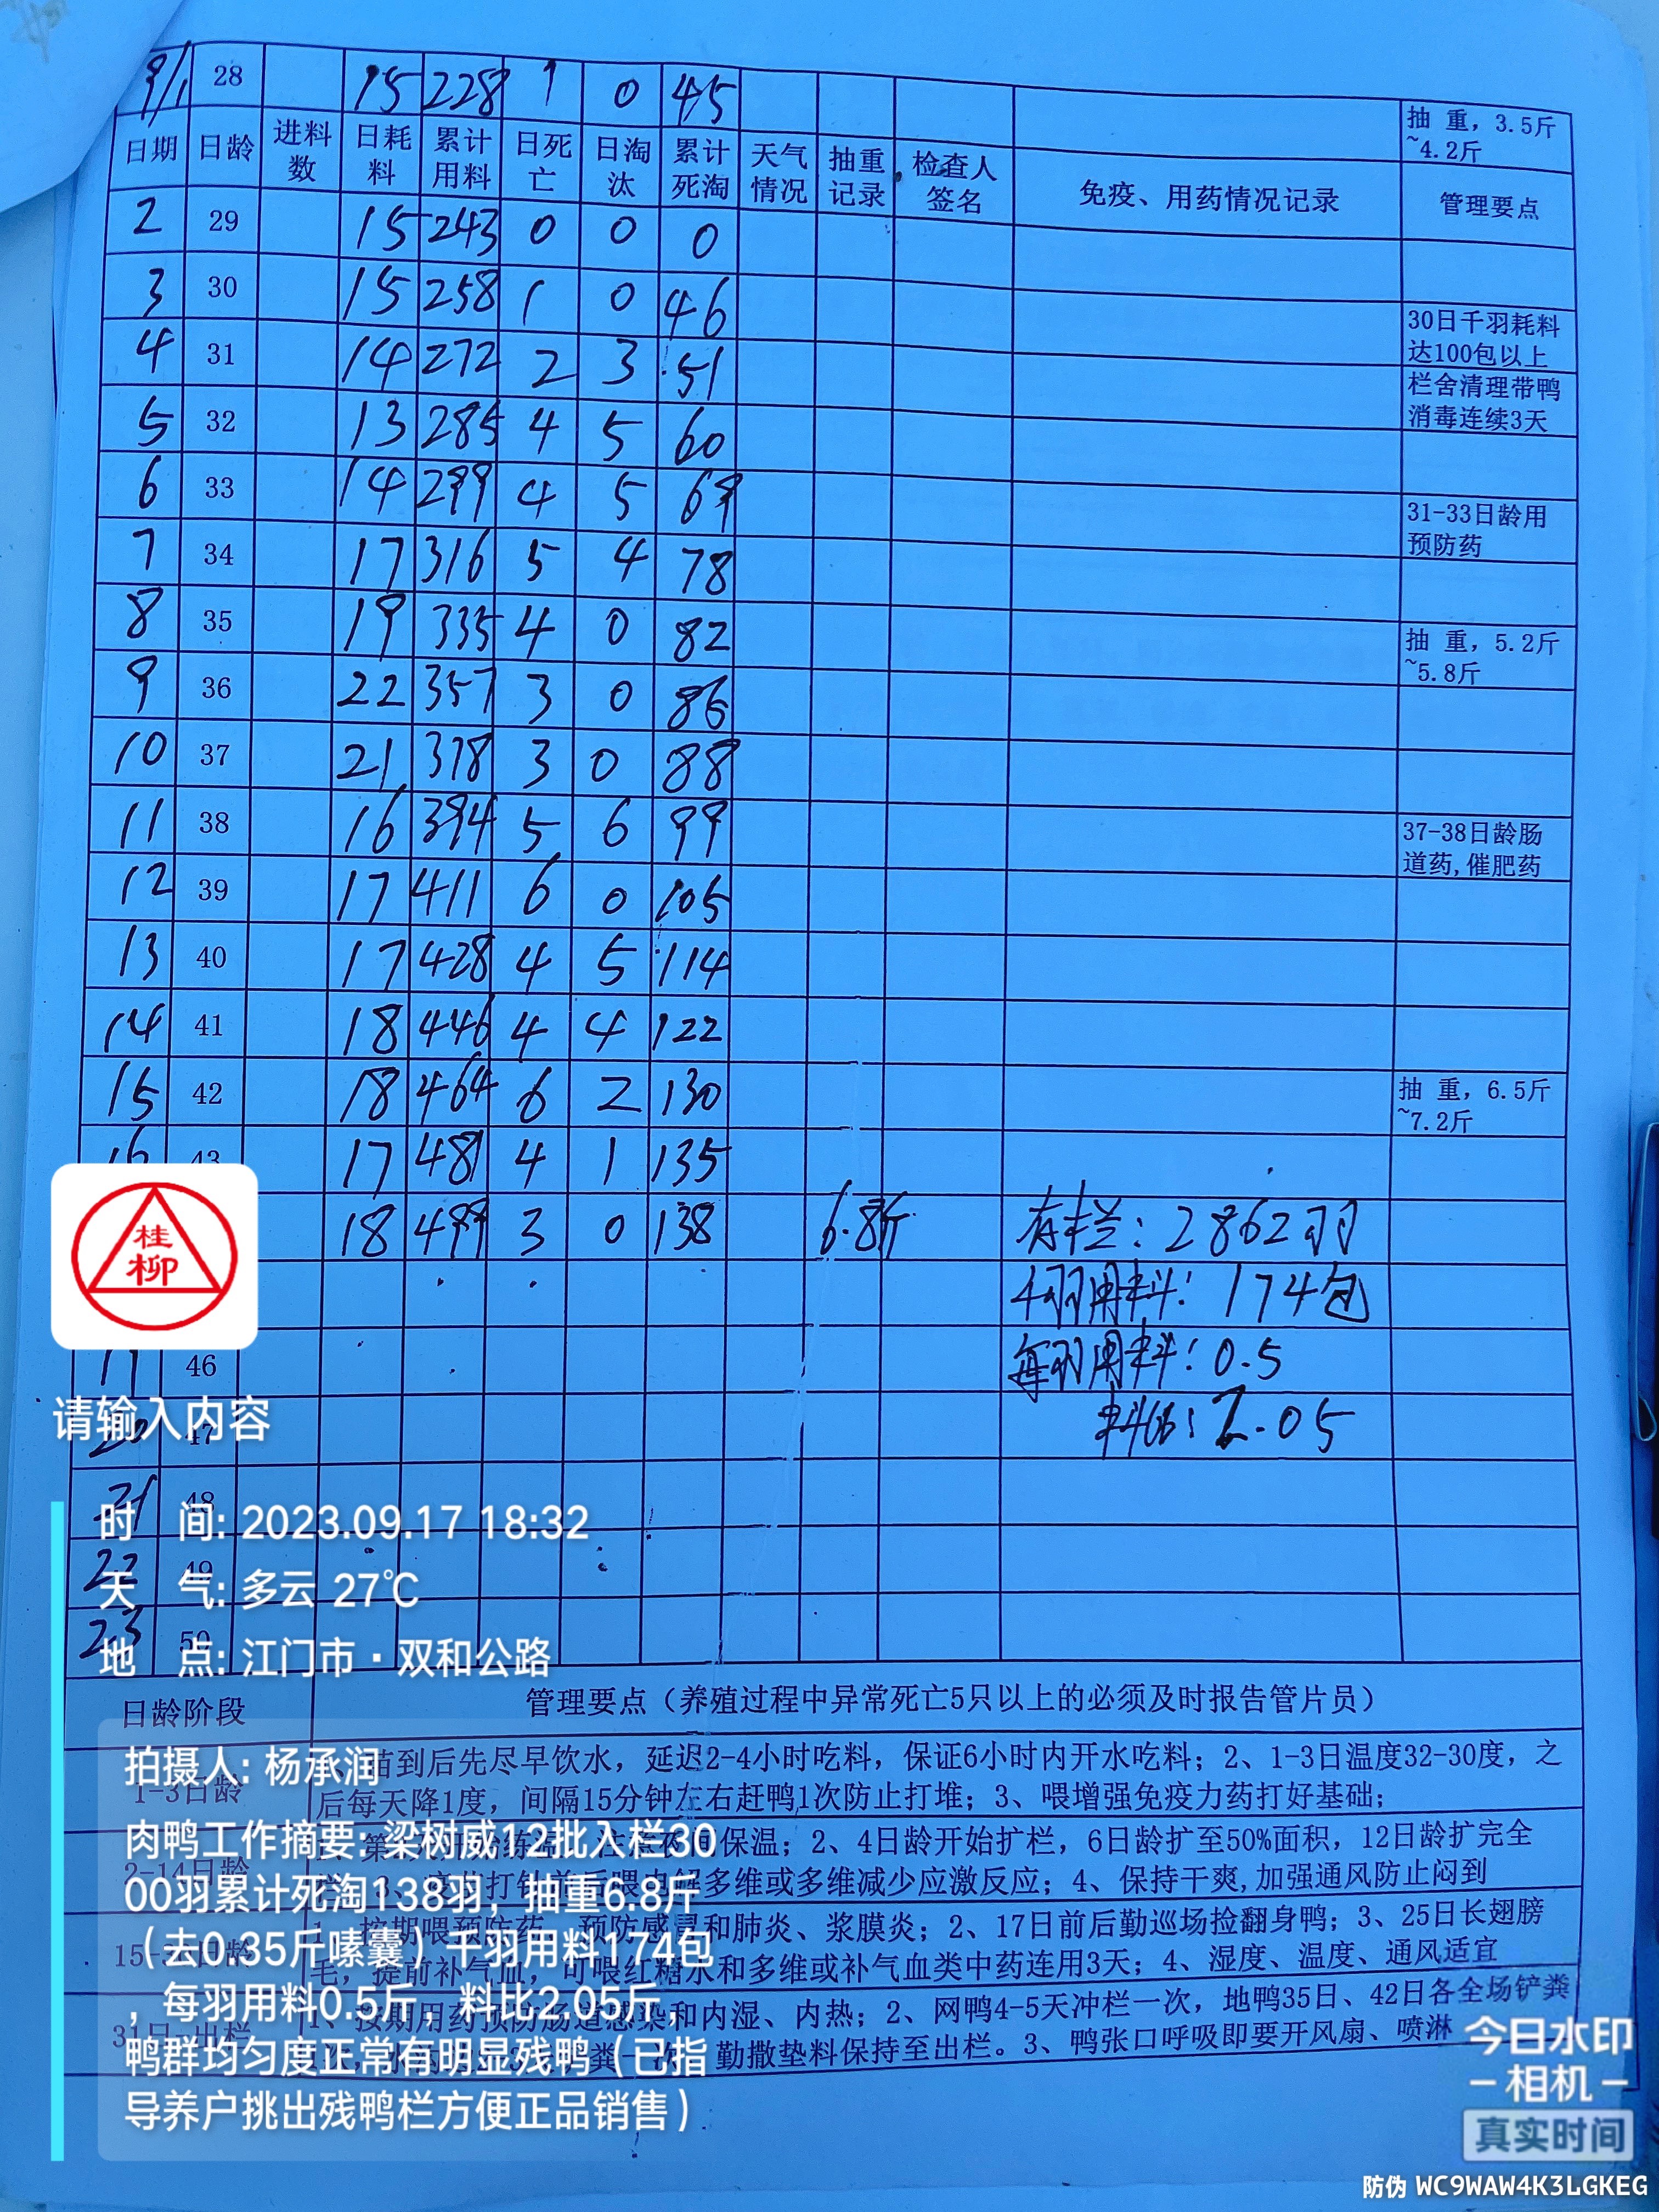 9/1 28 15 228 1 0 45 抽 重，3.5斤~4.2斤
日期 日龄 进料数 日耗料 累计用料 日死亡 日淘汰 累计死淘 天气情况 抽重记录 检查人签名 免疫、用药情况记录 管理要点
2 29 15 243 0 0 0
3 30 15 258 1 0 46 30日千羽耗料达100包以上
4 31 14 272 2 3 51 栏舍清理带鸭消毒连续3天
5 32 13 285 4 5 60
6 33 14 299 4 5 69 31-33日龄用预防药
7 34 17 316 5 4 78
8 35 19 335 4 0 82 抽 重，5.2斤~5.8斤
9 36 22 357 3 0 86
10 37 21 378 3 0 88
11 38 16 394 5 6 99 37-38日龄肠道药,催肥药
12 39 17 411 6 0 105
13 40 17 428 4 5 114
14 41 18 446 4 4 122
15 42 18 464 6 2 130 抽 重，6.5斤~7.2斤
16 43 17 481 4 1 135
18 499 3 0 138 6.8斤 存栏：2862羽
千羽用料：174包
46 每羽用料：0.5
47 料比：2.05
21 48
22 49
23 50
桂柳
请输入内容
时 间: 2023.09.17 18:32
天 气: 多云 27℃
地 点: 江门市·双和公路
日龄阶段 管理要点（养殖过程中异常死亡5只以上的必须及时报告管片员）
1-3日龄 苗到后先尽早饮水，延迟2-4小时吃料，保证6小时内开水吃料；2、1-3日温度32-30度，之
后每天降1度，间隔15分钟左右赶鸭1次防止打堆；3、喂增强免疫力药打好基础；
2-14日龄 保温；2、4日龄开始扩栏，6日龄扩至50%面积，12日龄扩完全
多维或多维减少应激反应；4、保持干爽,加强通风防止闷到
1、按期喂预防药，预防感冒和肺炎、浆膜炎；2、17日前后勤巡场捡翻身鸭；3、25日长翅膀
毛，提前补气血，可喂红糖水和多维或补气血类中药连用3天；4、湿度、温度、通风适宜
31日-出栏 1、按期用药预防肠道感染和内湿、内热；2、网鸭4-5天冲栏一次，地鸭35日、42日各全场铲粪
勤撒垫料保持至出栏。3、鸭张口呼吸即要开风扇、喷淋
拍摄人: 杨承润
肉鸭工作摘要: 梁树威12批入栏30
00羽累计死淘138羽，抽重6.8斤
（去0.35斤嗉囊，千羽用料174包
，每羽用料0.5斤，料比2.05斤，
鸭群均匀度正常有明显残鸭（已指
导养户挑出残鸭栏方便正品销售）
今日水印
相机
真实时间
防伪 WC9WAW4K3LGKEG